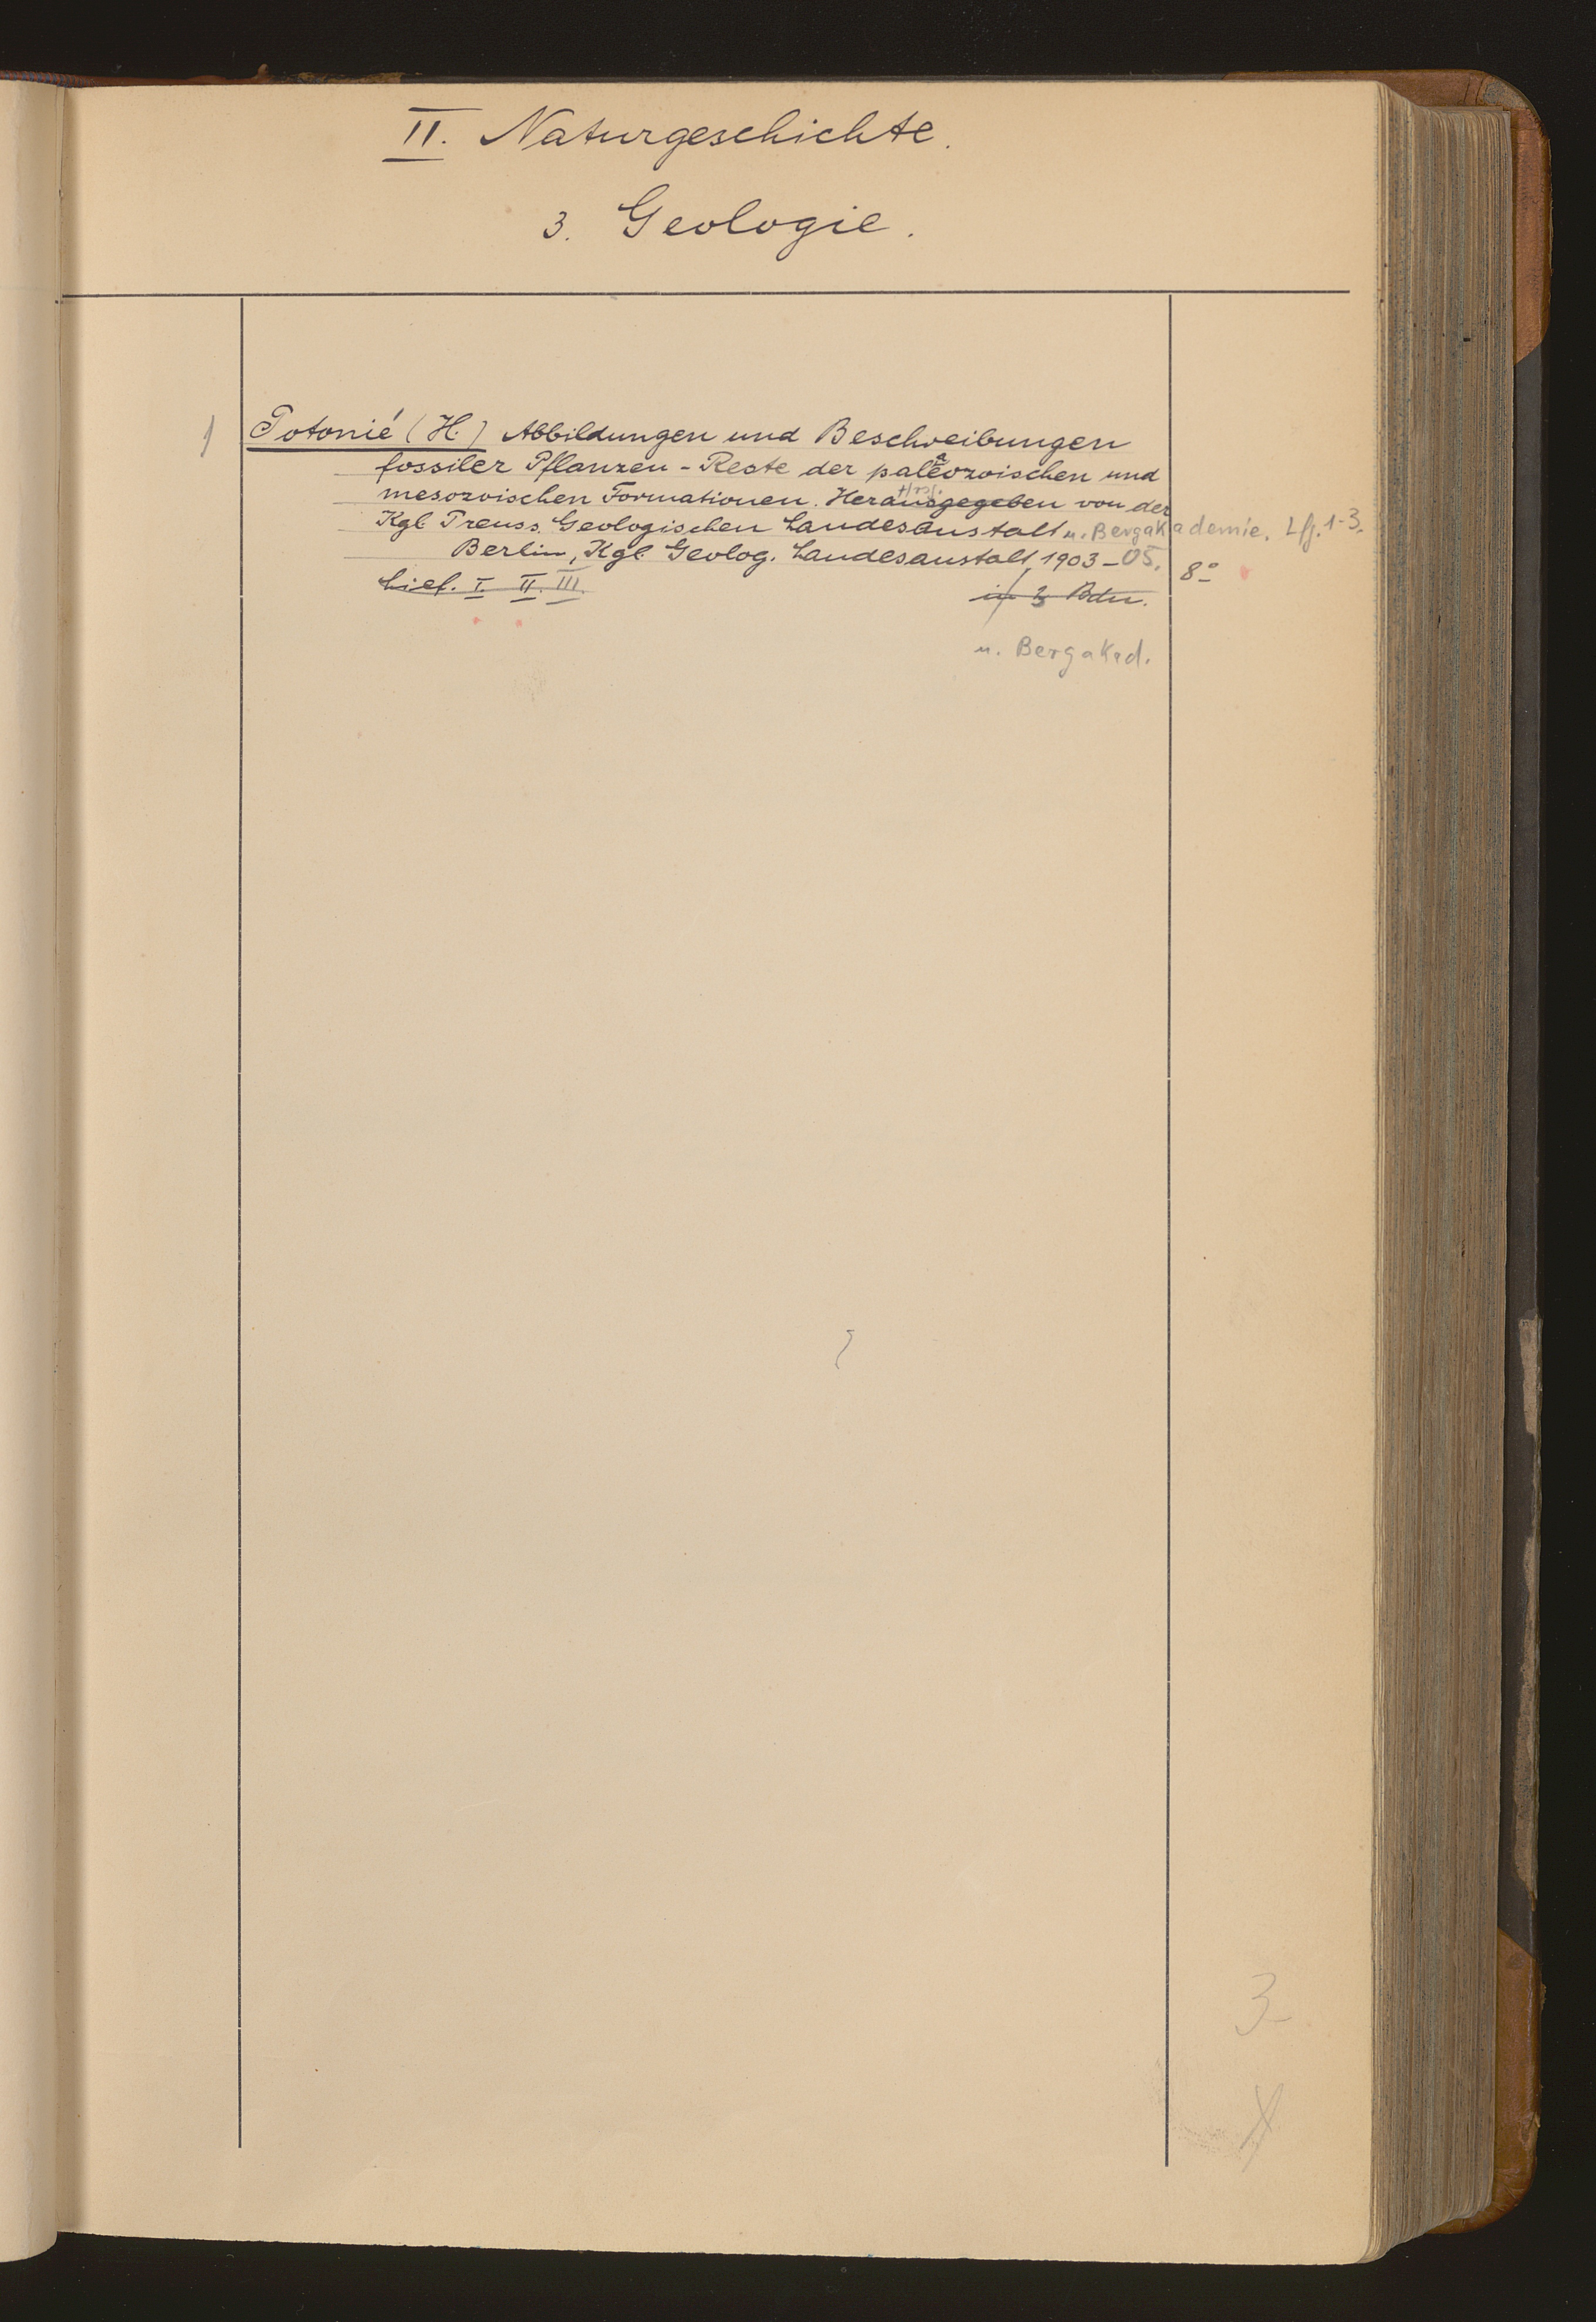 II. Naturgeschichte.
3. Geologie.
1 Potonié (H.) Abbildungen und Beschreibungen
fossiler Pflanzen-Reste der palaeozoischen und
mesozoischen Formationen. Herausgegeben Hrsg. von der
Kgl. Preuss. Geologischen Landesanstalt u. Bergakademie. Lfg. 1-3.
Berlin, Kgl. Geolog. Landesanstalt, 1903-05. 8°
Lief. I. II. III. in 3 Bdn.
u. Bergakad.
3